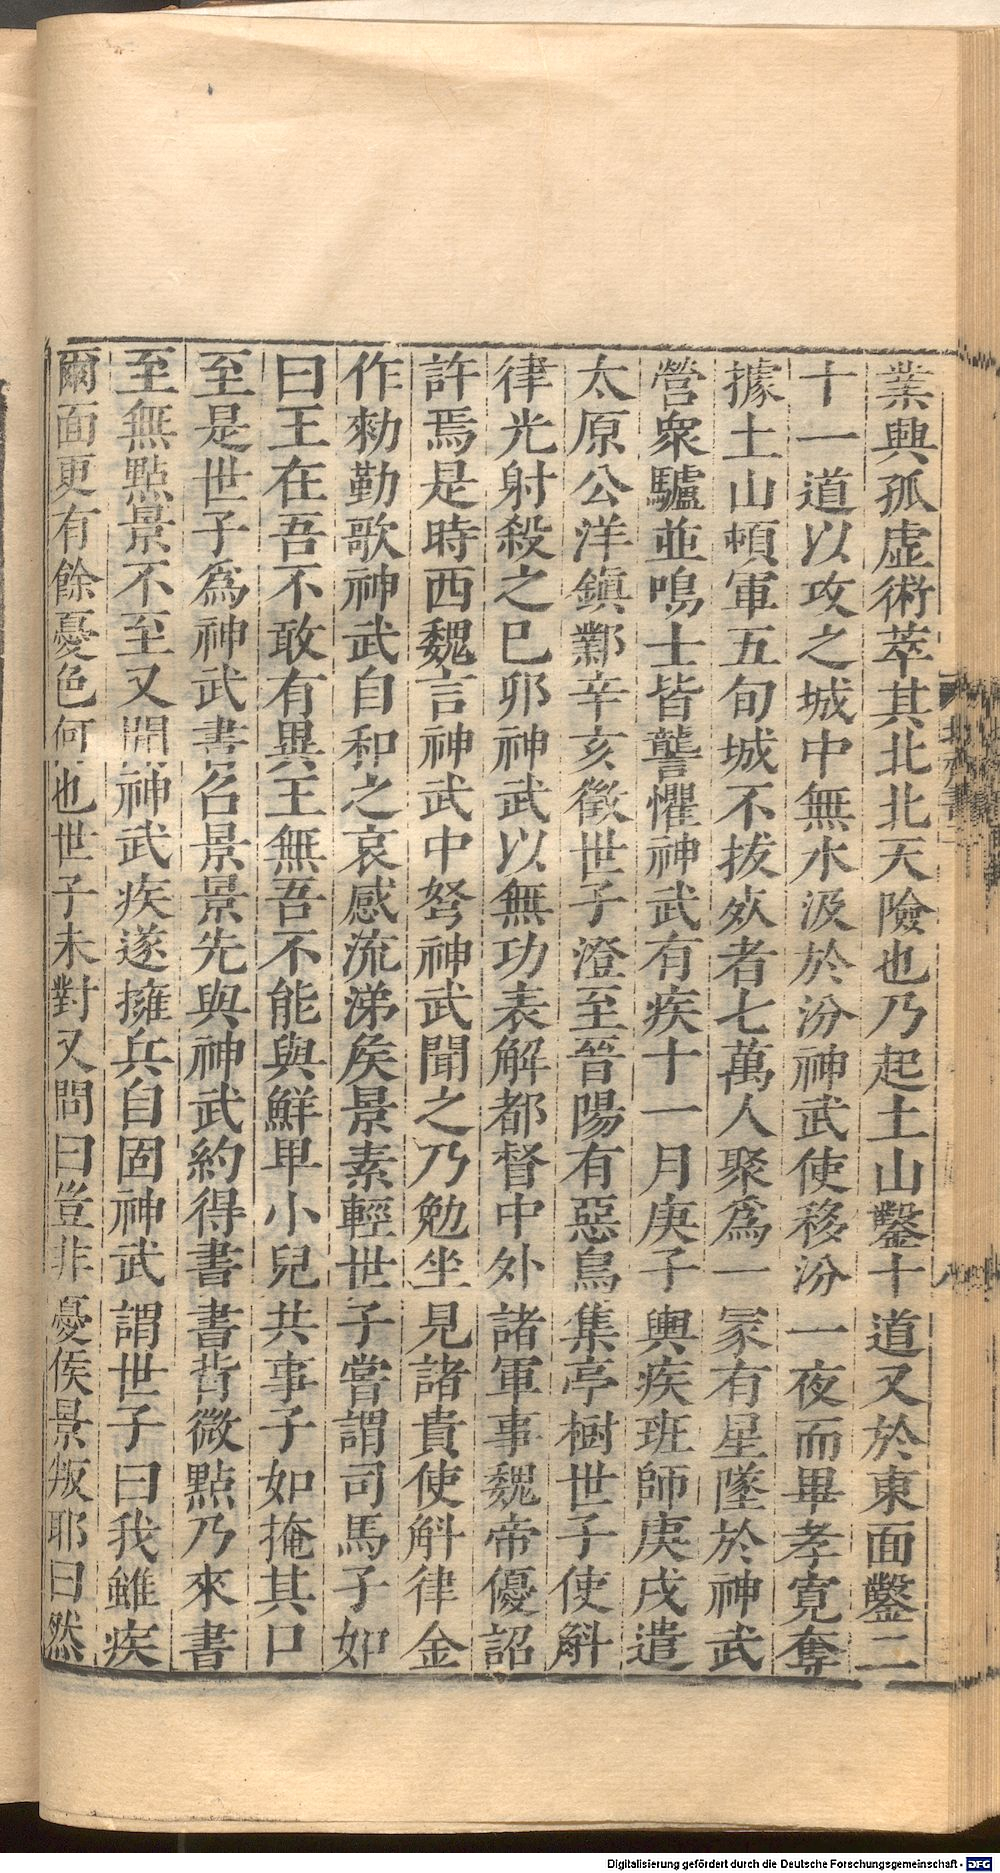 業興孤虚術萃其北北天險也乃起土山鑿十道又於東面鑿二
十一道以攻之城中無水汲於汾神武使移汾一夜而畢孝寛奪
據土山頓軍五旬城不拔死者七萬人聚爲一冢有星墜於神武
營衆驢並鳴士皆讋懼神武有疾十一月庚子輿疾班師庚戌遣
太原公洋鎭鄴辛亥徵世子澄至晉陽有惡鳥集亭樹世子使斛
律光射殺之巳卯神武以無功表解都督中外諸軍事魏帝優詔
許焉是時西魏言神武中弩神武聞之乃勉坐見諸貴使斛律金
作勑勤歌神武自和之哀感流涕矦景素輕世子嘗謂司馬子如
曰王在吾不敢有異王無吾不能與鮮卑小兒共事子如掩其口
至是世子爲神武書召景景先與神武約得書書背微點乃來書
至無點景不至又聞神武疾遂擁兵自固神武謂世子曰我雖疾
爾面更有餘憂色何也世子未對又問曰豈非憂侯景叛耶曰然
Digitalisierung gefördert durch die Deutsche Forschungsgemeinschaft - DFG